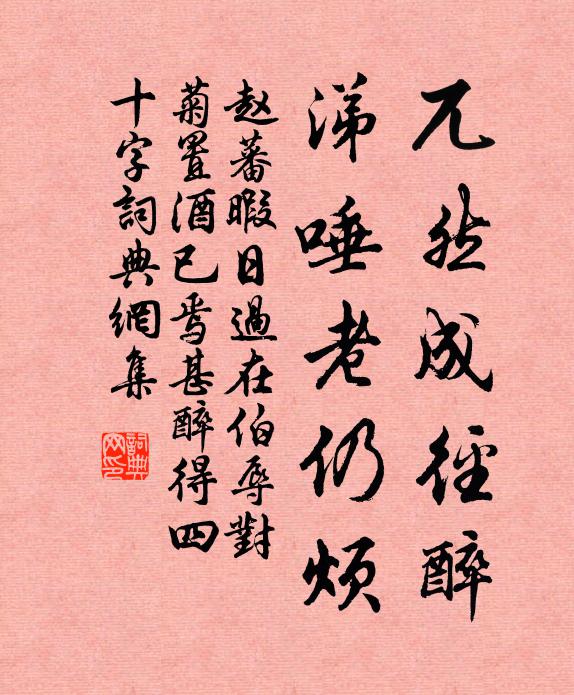 兀然成径醉
涕唾老仍烦
赵蕃暇日過在伯辱對
菊置酒已焉甚醉得四
十字詞典網集
詞典
网印